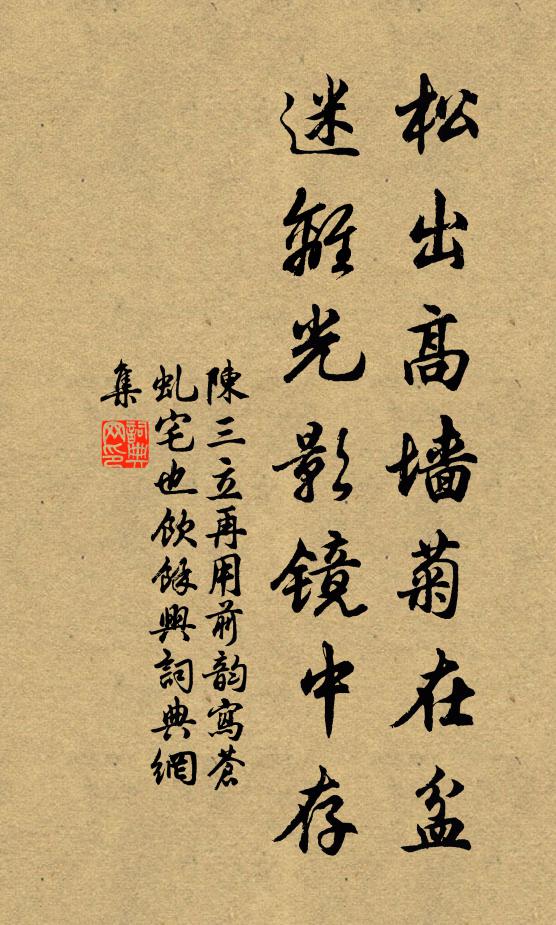 松出高墙菊在盆
迷離光影镜中存
陳三立再用前韵寫蒼
虬宅也飲餘興詞典網
集
詞典
网印